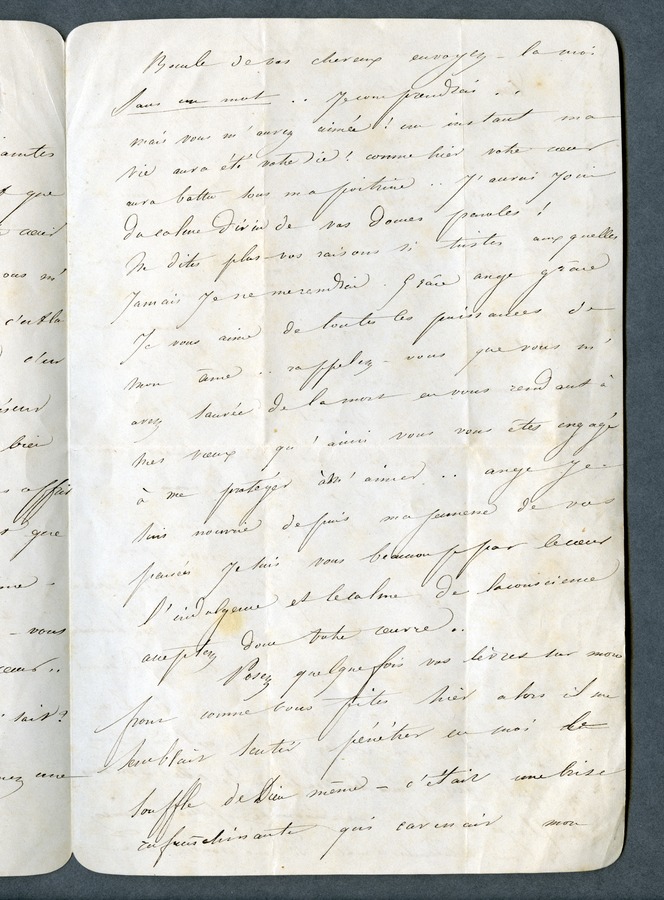 aintes
t que
cœur
ous m'
c'est la
d'un
bien
s affai
t que
- vous
cœur..
sait?
nez une
Boucle de vos cheveux envoyez - la moi
Sans un mot .. Je comprendrai ..
mais vous m'aurez aimée ! un instant ma
vie aura été votre vie ! comme hier votre cœur
aura battu sous ma poitrine .. J'aurai joui
du calme divin de vos douces paroles !
Ne dites plus vos raisons si tristes auxquelles
Jamais Je ne me rendrai . Grâce ange grâce
Je vous aime de toutes les puissances de
mon âme .. rappelez - vous que vous m'
avez sauvée de la mort en vous rendant à
mes vœux qu'ainsi vous vous êtes engagé
à me protéger à m'aimer .. ange Je
suis nourrie depuis ma jeunesse de vos
pensées Je suis vous beaucoup par le cœur
l'indulgence et le calme de la conscience
acceptez donc votre œuvre ..
Posez quelquefois vos lèvres sur mon
front comme vous fites hier alors il me
semblait sentir pénétrer en moi le
souffle de Dieu même - c'était une brise
rafraichissante qui caressait mon